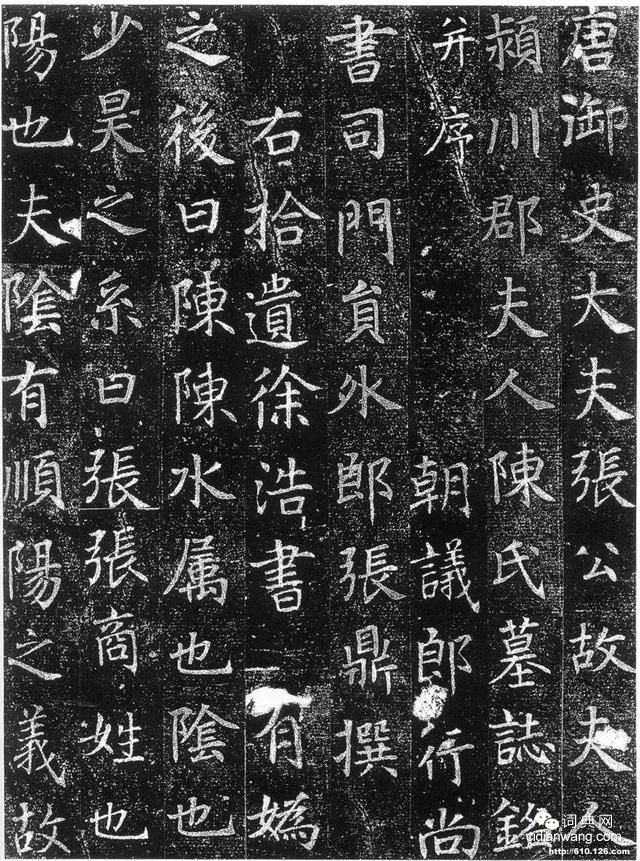 唐御史大夫張公故夫人
潁川郡夫人陳氏墓誌銘
并序 朝議郎行尚
書司門員外郎張鼎撰
右拾遺徐浩書 有嬀
之後曰陳陳水属也陰也
少昊之系曰張張商姓也
陽也夫陰有順陽之義故
词典网
cidianwang.com
http://610.126.com